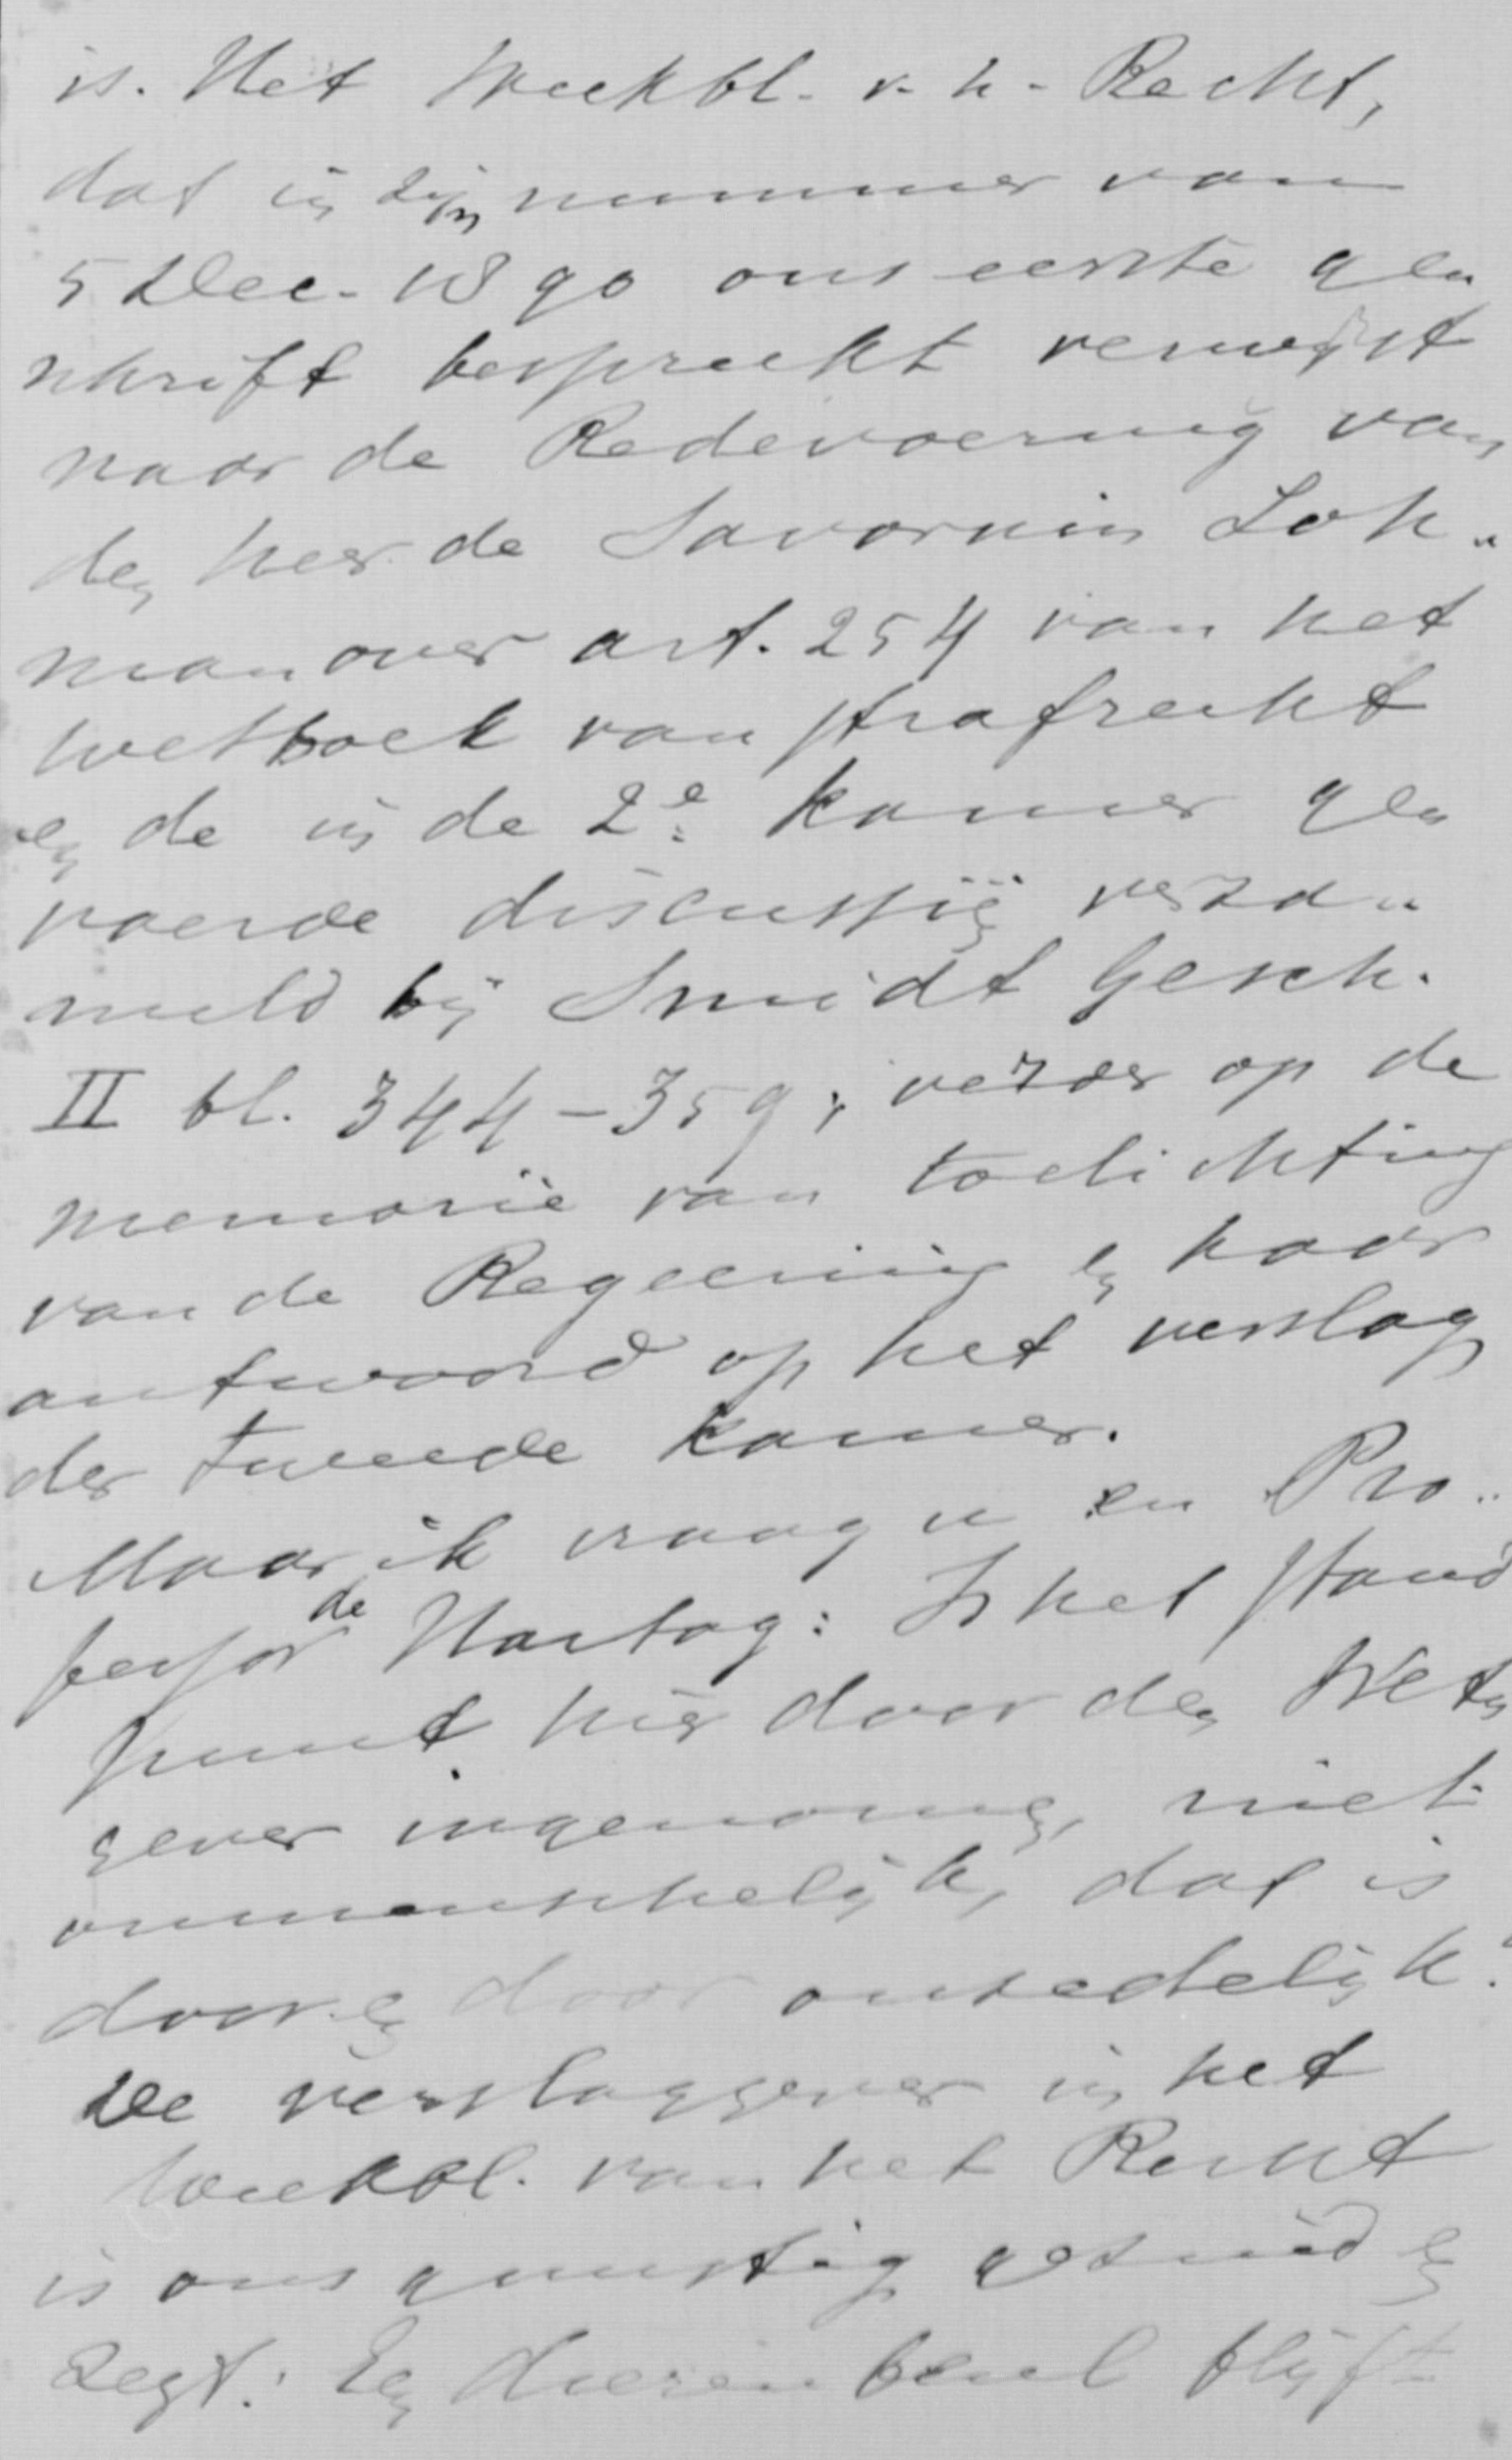 is. Het Weekbl. v. h. Recht,
dat in zijn nummer van
5 Dec. 1890 ons eerste ge„
schrift bespreekt verwijst
naar de Redevoering van
den heer de Savornin Loh„
man over art. 254 van het
wetboek van strafrecht
en de in de 2e kamer ge„
voerde discussiën verza„
meld bij Smidt Gesch.
II bl. 344-359; verder op de
memorie van toelichting
van de Regeering en haar
antwoord op het verslag
der tweede kamer.
Maar ik vraag u en Pro„
fessor de Hartog: Is het stand
punt hier door den Wet„
gever ingenomen, niet
onmenschelijk, dat is
door en door onzedelijk?
De verslaggever in het
Weekbl. van het Recht
is ons gunstig gezind en
zegt: Een dierenbeul blijft